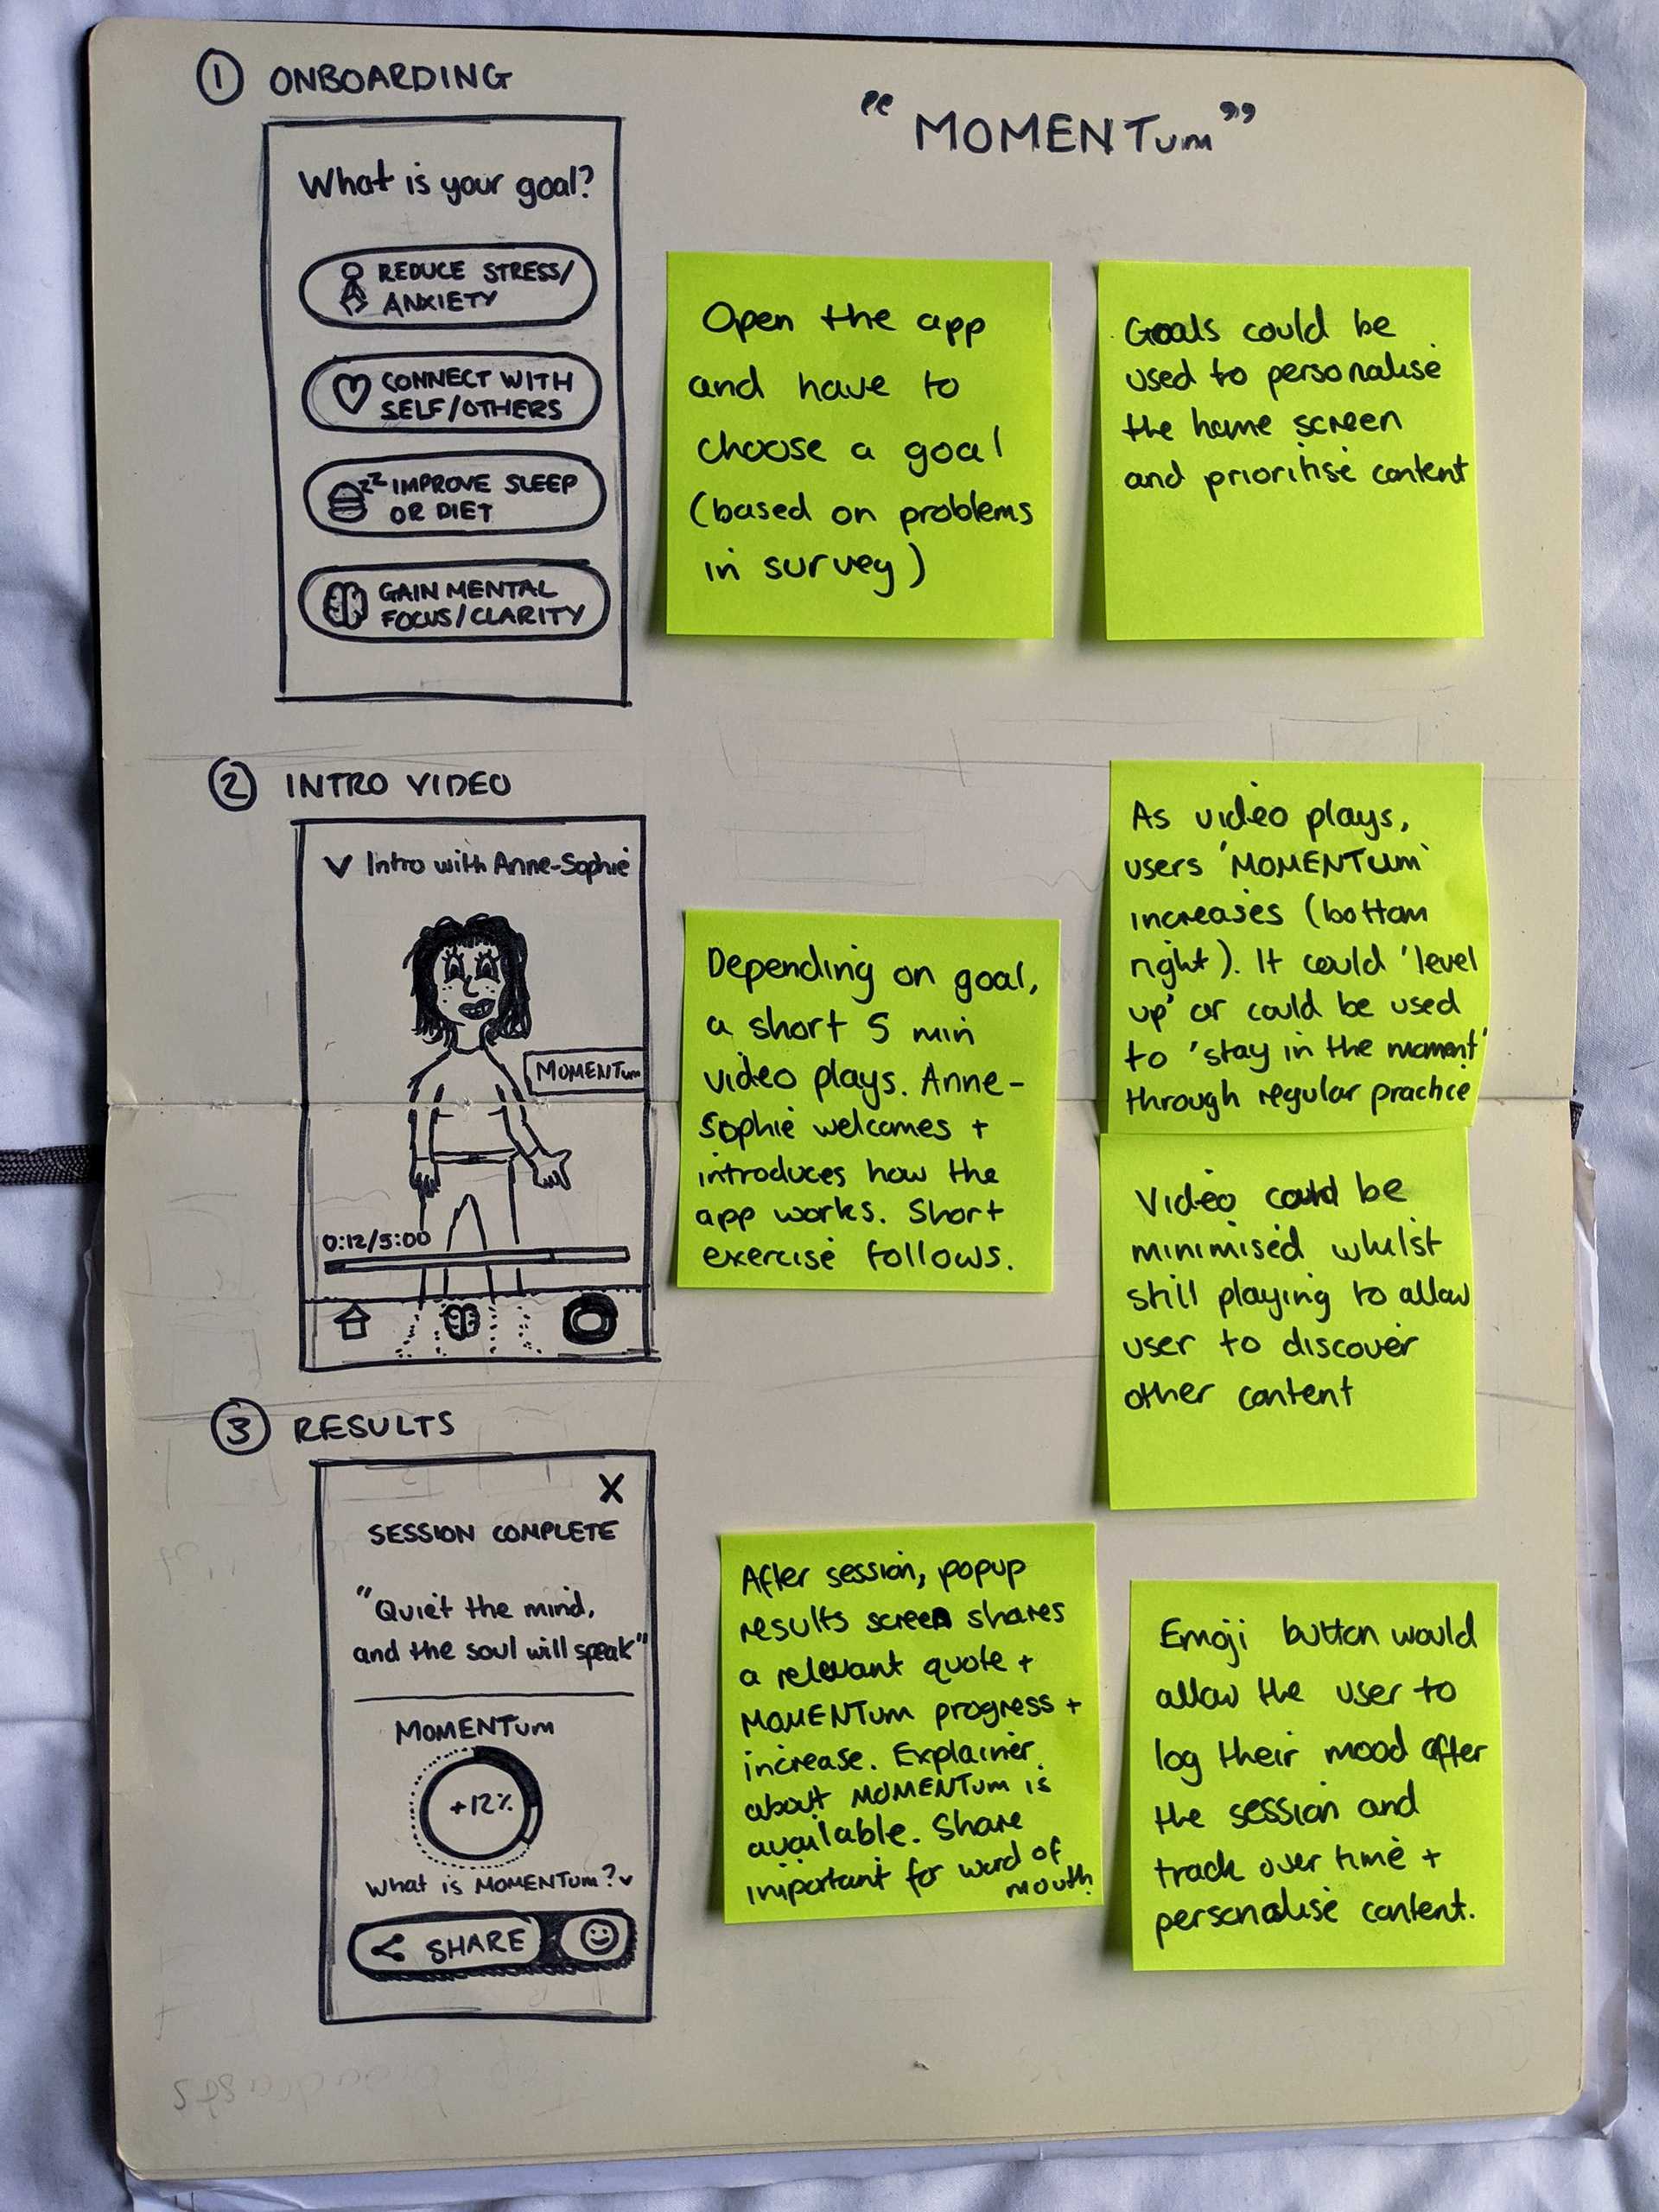 ① ONBOARDING
"MOMENTum"
What is your goal?
REDUCE STRESS/
ANXIETY
CONNECT WITH
SELF/OTHERS
zz IMPROVE SLEEP
OR DIET
GAIN MENTAL
FOCUS/CLARITY
Open the app
and have to
choose a goal
(based on problems
in survey)
Goals could be
used to personalise
the home screen
and prioritise content
② INTRO VIDEO
Intro with Anne-Sophie
MOMENTum
0:12/5:00
Depending on goal,
a short 5 min
video plays. Anne-
Sophie welcomes +
introduces how the
app works. Short
exercise follows.
As video plays,
users 'MOMENTum'
increases (bottom
right). It could 'level
up' or could be used
to 'stay in the moment'
through regular practice
Video could be
minimised whilst
still playing to allow
user to discover
other content
③ RESULTS
X
SESSION COMPLETE
"Quiet the mind,
and the soul will speak"
MOMENTum
+12%
What is MOMENTum?
SHARE
After session, popup
results screen shares
a relevant quote +
MOMENTum progress +
increase. Explainer
about MOMENTum is
available. Share
important for word of
mouth
Emoji button would
allow the user to
log their mood after
the session and
track over time +
personalise content.